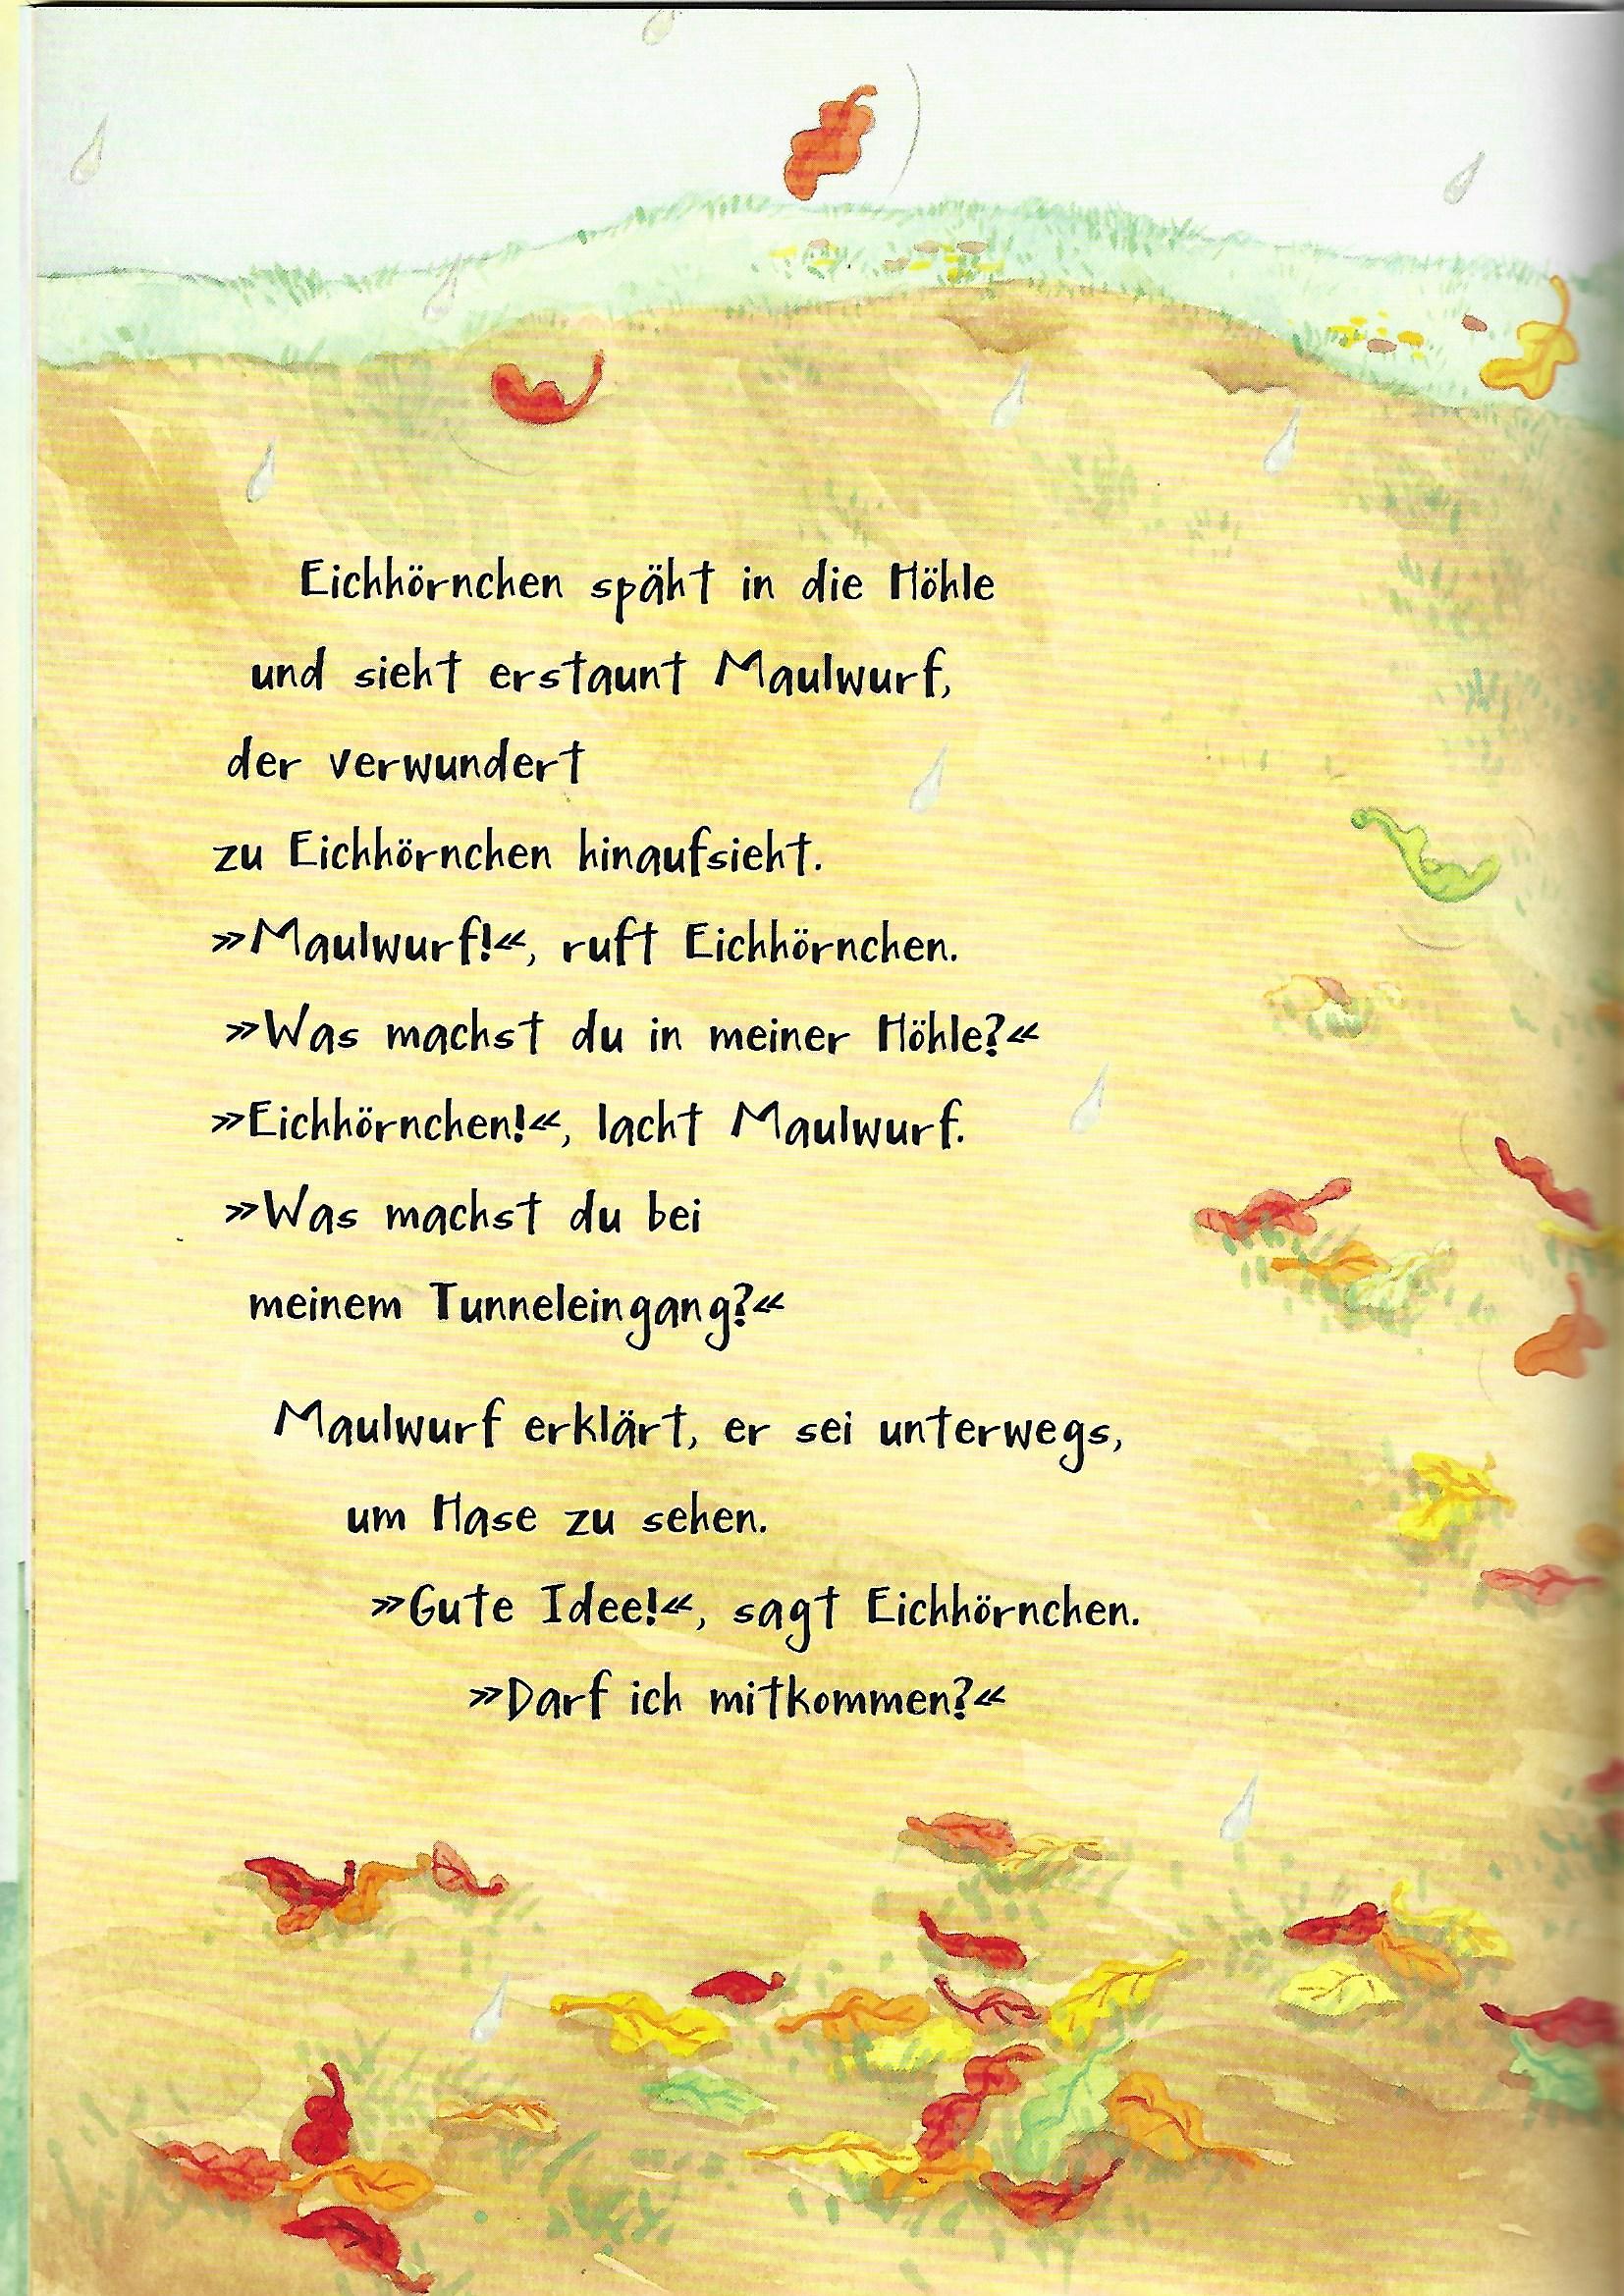 Eichhörnchen späht in die Höhle
und sieht erstaunt Maulwurf,
der verwundert
zu Eichhörnchen hinaufsieht.
»Maulwurf!«, ruft Eichhörnchen.
»Was machst du in meiner Höhle?«
»Eichhörnchen!«, lacht Maulwurf.
»Was machst du bei
meinem Tunneleingang?«
Maulwurf erklärt, er sei unterwegs,
um Hase zu sehen.
»Gute Idee!«, sagt Eichhörnchen.
»Darf ich mitkommen?«